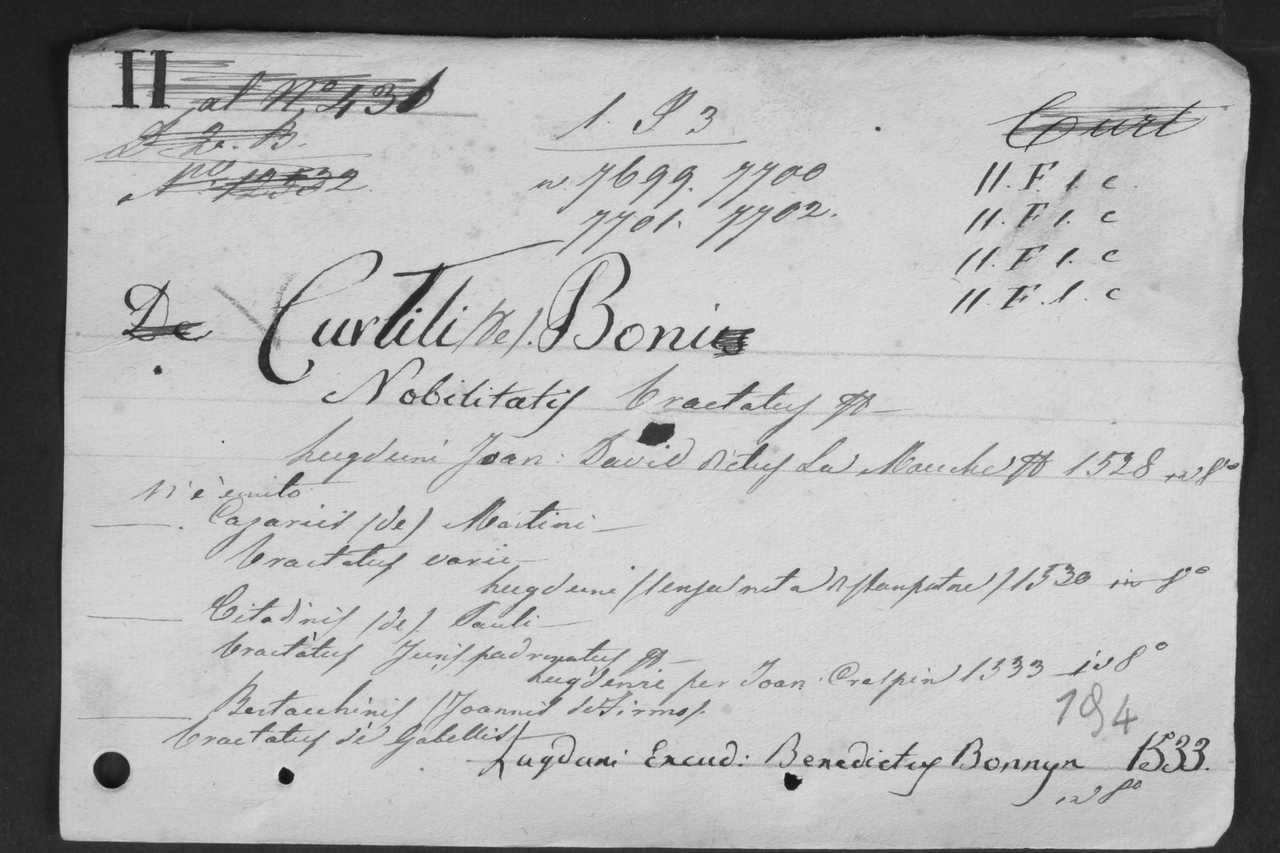 II al N.o 436
D. 2e. B.
N.o 12532
1. P 3
n. 7699. 7700
7701. 7702.
Curt
II. F. 1. c.
II. F 1. c
II. F 1. c
II. F. 1. c
De Curtili (de). Bonius
Nobilitatis Tractatus &
Lugduni Joan: David dictus La Mouche & 1528 in 8o
N' è unito
Cazariis (de) Martini
Tractatus varii
Lugduni (senza nota di stampatore) 1530 in 8o
Citadinis (de) Pauli
Tractatus Juris patronatus &
Lugduni per Joan. Crespin 1533 in 8o
Bertacchinis (Joannis de Firmo).
Tractatus de Gabellis
194
Lugduni Excud: Benedictus Bonnyn 1533.
in 8o